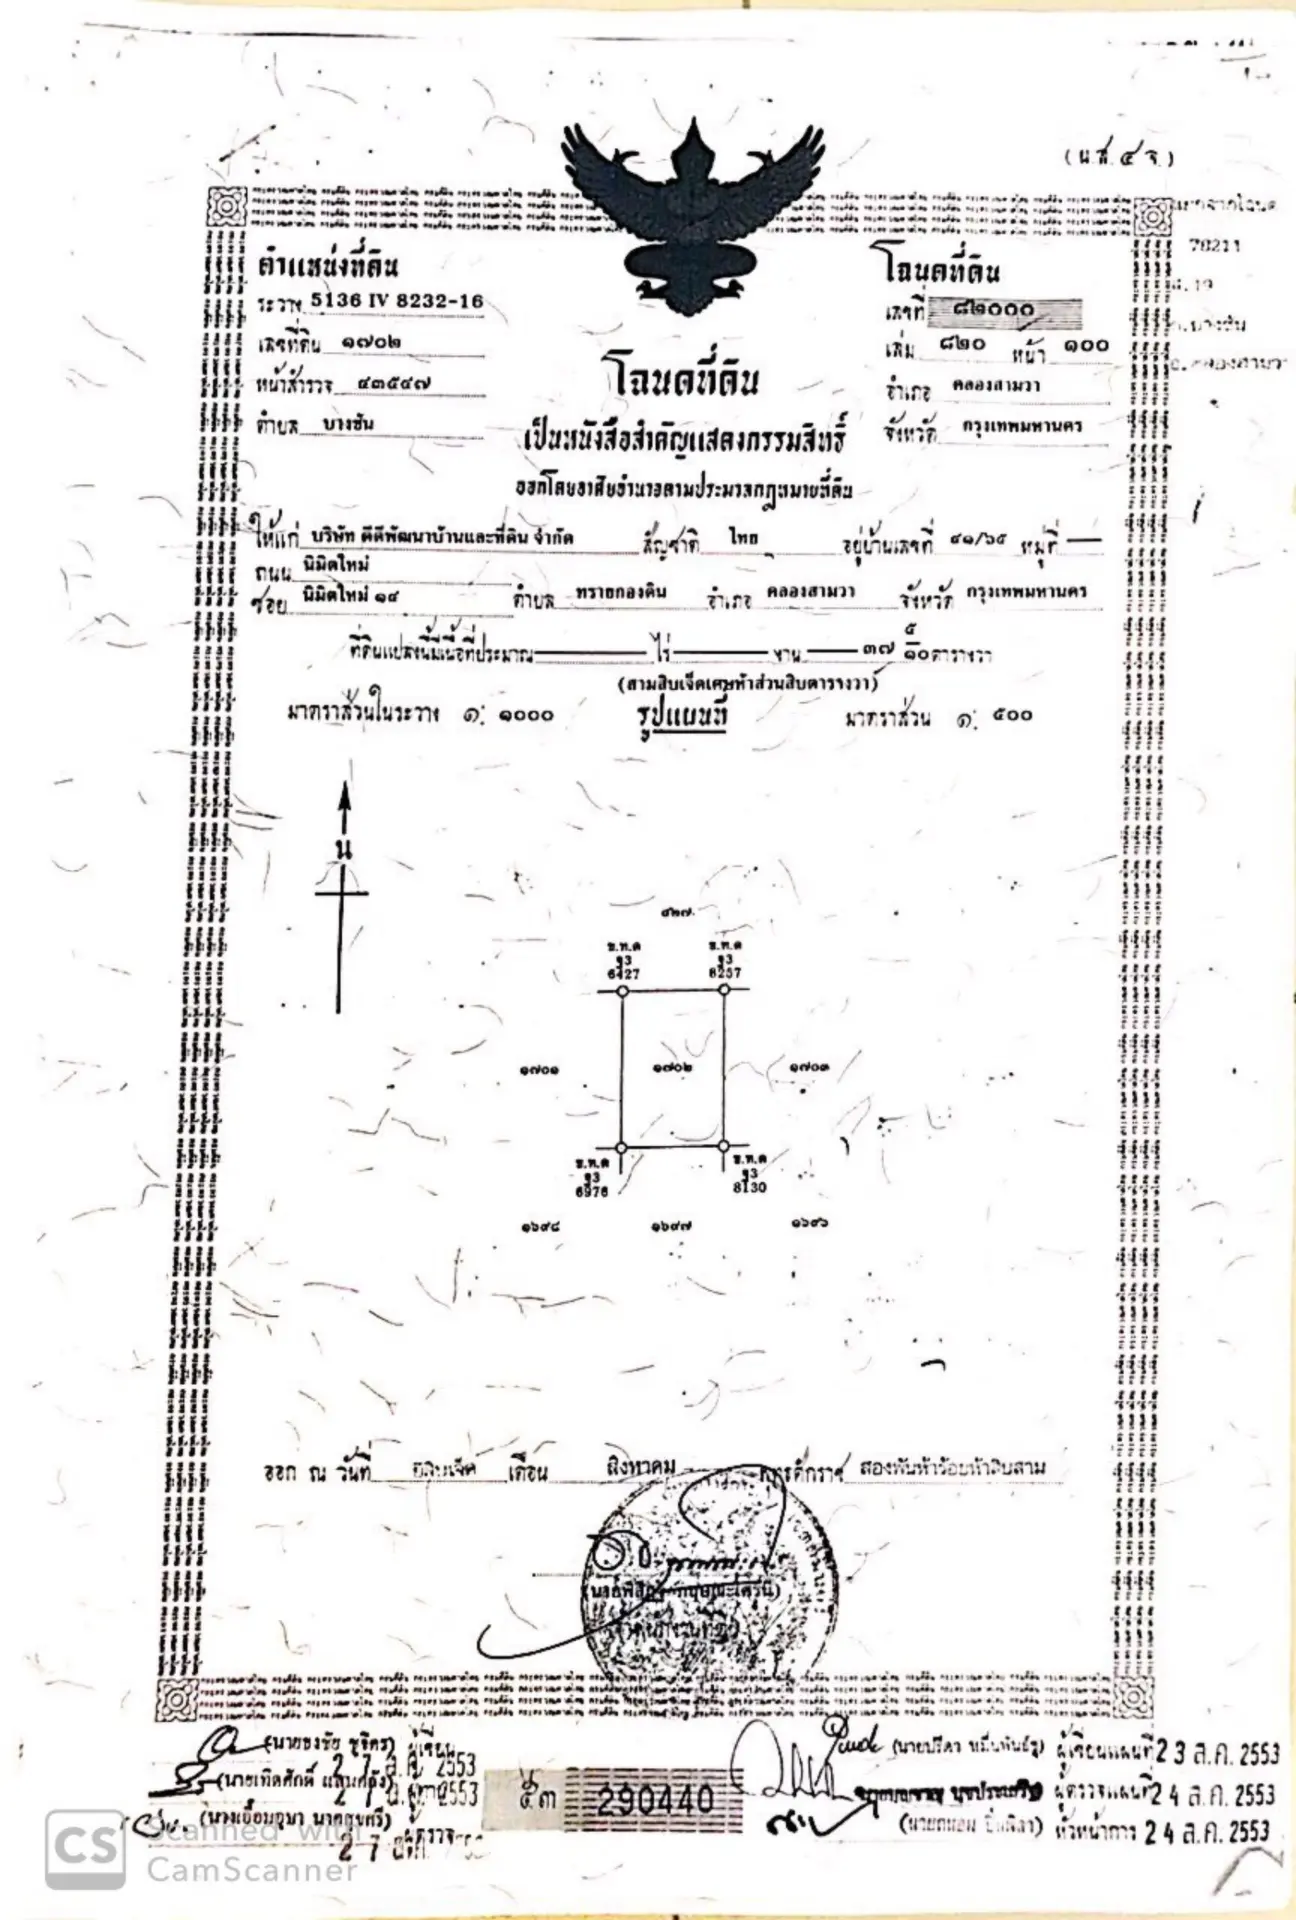 (น.ส. ๔ จ.)
ตำแหน่งที่ดิน
ระวาง 5136 IV 8232-16
เลขที่ดิน ๑๗๐๒
หน้าสำรวจ ๔๓๕๔๗
ตำบล บางชัน
โฉนดที่ดิน
เลขที่ ๘๒๐๐๐
เล่ม ๘๒๐ หน้า ๑๐๐
อำเภอ คลองสามวา
จังหวัด กรุงเทพมหานคร
78211
โฉนดที่ดิน
เป็นหนังสือสำคัญแสดงกรรมสิทธิ์
ออกโดยอาศัยอำนาจตามประมวลกฎหมายที่ดิน
ให้แก่ บริษัท ดีดีพัฒนาบ้านและที่ดิน จำกัด สัญชาติ ไทย อยู่บ้านเลขที่ ๔๑/๖๕ หมู่ที่ —
ถนน นิมิตใหม่
ซอย นิมิตใหม่ ๑๔ ตำบล ทรายกองดิน อำเภอ คลองสามวา จังหวัด กรุงเทพมหานคร
ที่ดินแปลงนี้มีเนื้อที่ประมาณ — ไร่ — งาน — ๓๗ ๕/๑๐ ตารางวา
(สามสิบเจ็ดเศษห้าส่วนสิบตารางวา)
มาตราส่วนในระวาง ๑: ๑๐๐๐ รูปแผนที่ มาตราส่วน ๑: ๕๐๐
น
๔๒๗
ข.ท.ด ข.ท.ด
ฐ3 ฐ3
6427 8257
๑๗๐๑ ๑๗๐๒ ๑๗๐๓
ข.ท.ด ข.ท.ด
ฐ3 ฐ3
6976 8130
๑๖๙๘ ๑๖๙๗ ๑๖๙๖
ออก ณ วันที่ เดือน สิงหาคม พุทธศักราช สองพันห้าร้อยห้าสิบสาม
(นายธงชัย ชูจิตร) ผู้เขียน
2 7 ส.ค. 2553
(นายเทิดศักดิ์
2 7 2553
(นางเอื้อมอุมา นาคสุขศรี) ผู้ตรวจ
2 7
๕๓ 290440
(นายปรีดา หมื่นพันธ์ชู) ผู้เขียนแผนที่ 2 3 ส.ค. 2553
ผู้ตรวจแผนที่ 2 4 ส.ค. 2553
หัวหน้าการ 2 4 ส.ค. 2553
CS Scanned with
CamScanner